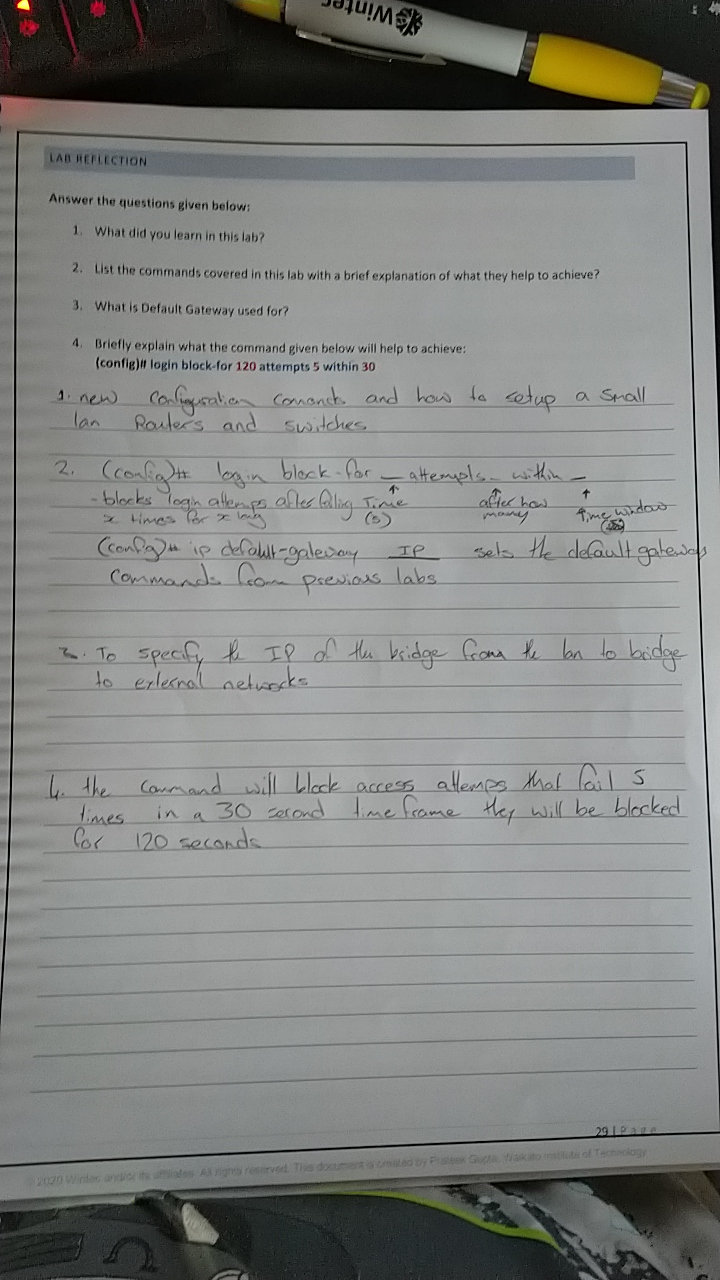 Winter
LAB REFLECTION
Answer the questions given below:
1. What did you learn in this lab?
2. List the commands covered in this lab with a brief explanation of what they help to achieve?
3. What is Default Gateway used for?
4. Briefly explain what the command given below will help to achieve:
(config)# login block-for 120 attempts 5 within 30
1. new configuration comands and how to setup a small
lan Routers and switches
2. (config)# login block-for _ attempts _ within _
- blocks login attemps after failing Time ↑ after how ↑ time window ↑
x times for x long (s) many
(config)# ip default-gateway IP sets the default gateway
commands from previous labs
3. To specify the IP of the bridge from the lan to bridge
to external networks
4. the command will block access attemps that fail 5
times in a 30 second time frame they will be blocked
for 120 seconds
29 | Page
© 2020 Wintec and/or its affiliates. All rights reserved. This document is created by Prateek Gupta, Waikato Institute of Technology